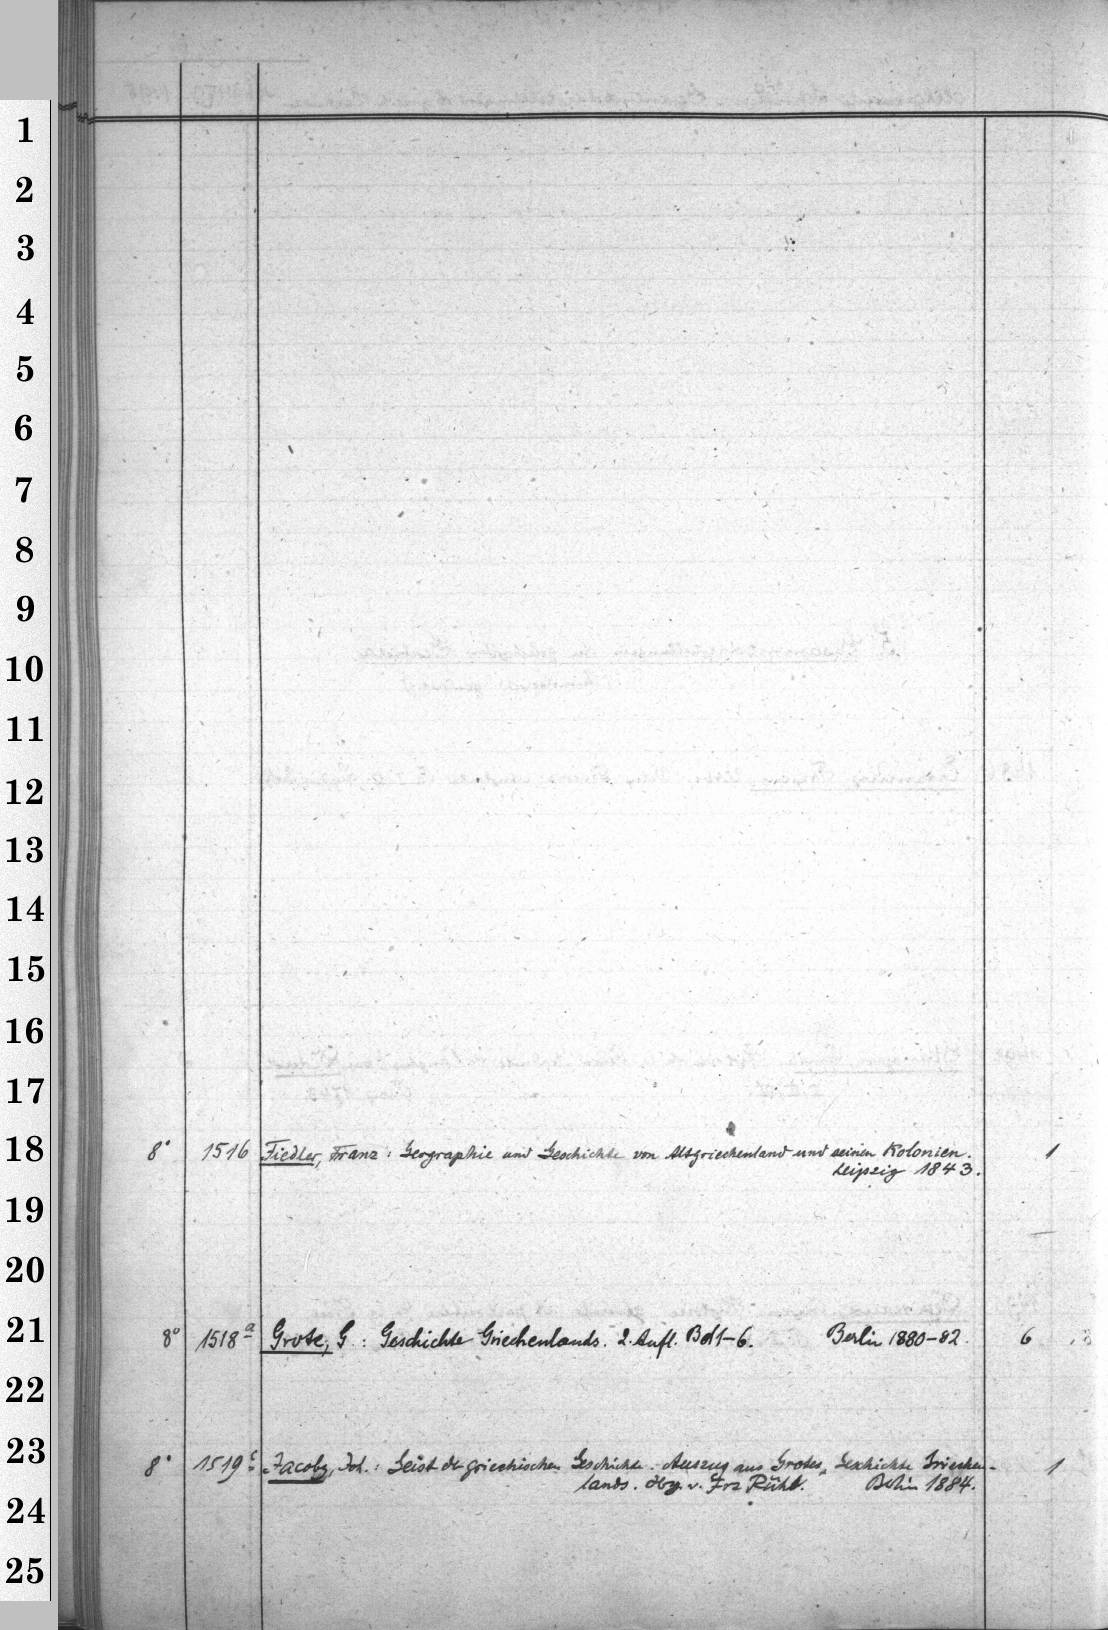 1
2
3
4
5
6
7
8
9
10
11
12
13
14
15
16
17
18
8° 1516 Fiedler, Franz: Geographie und Geschichte von Altgriechenland und seinen Kolonien. 1
Leipzig 1843.
19
20
21
8° 1518a Grote, G.: Geschichte Griechenlands. 2. Aufl. Bd 1-6. Berlin 1880-82. 6
22
23
8° 1519 Jacoby, Joh.: Geist der griechischen Geschichte. Auszug aus Grotes Geschichte Griechen-
1
lands. Hbg. v. Frz Rühl. Berlin 1884.
24
25